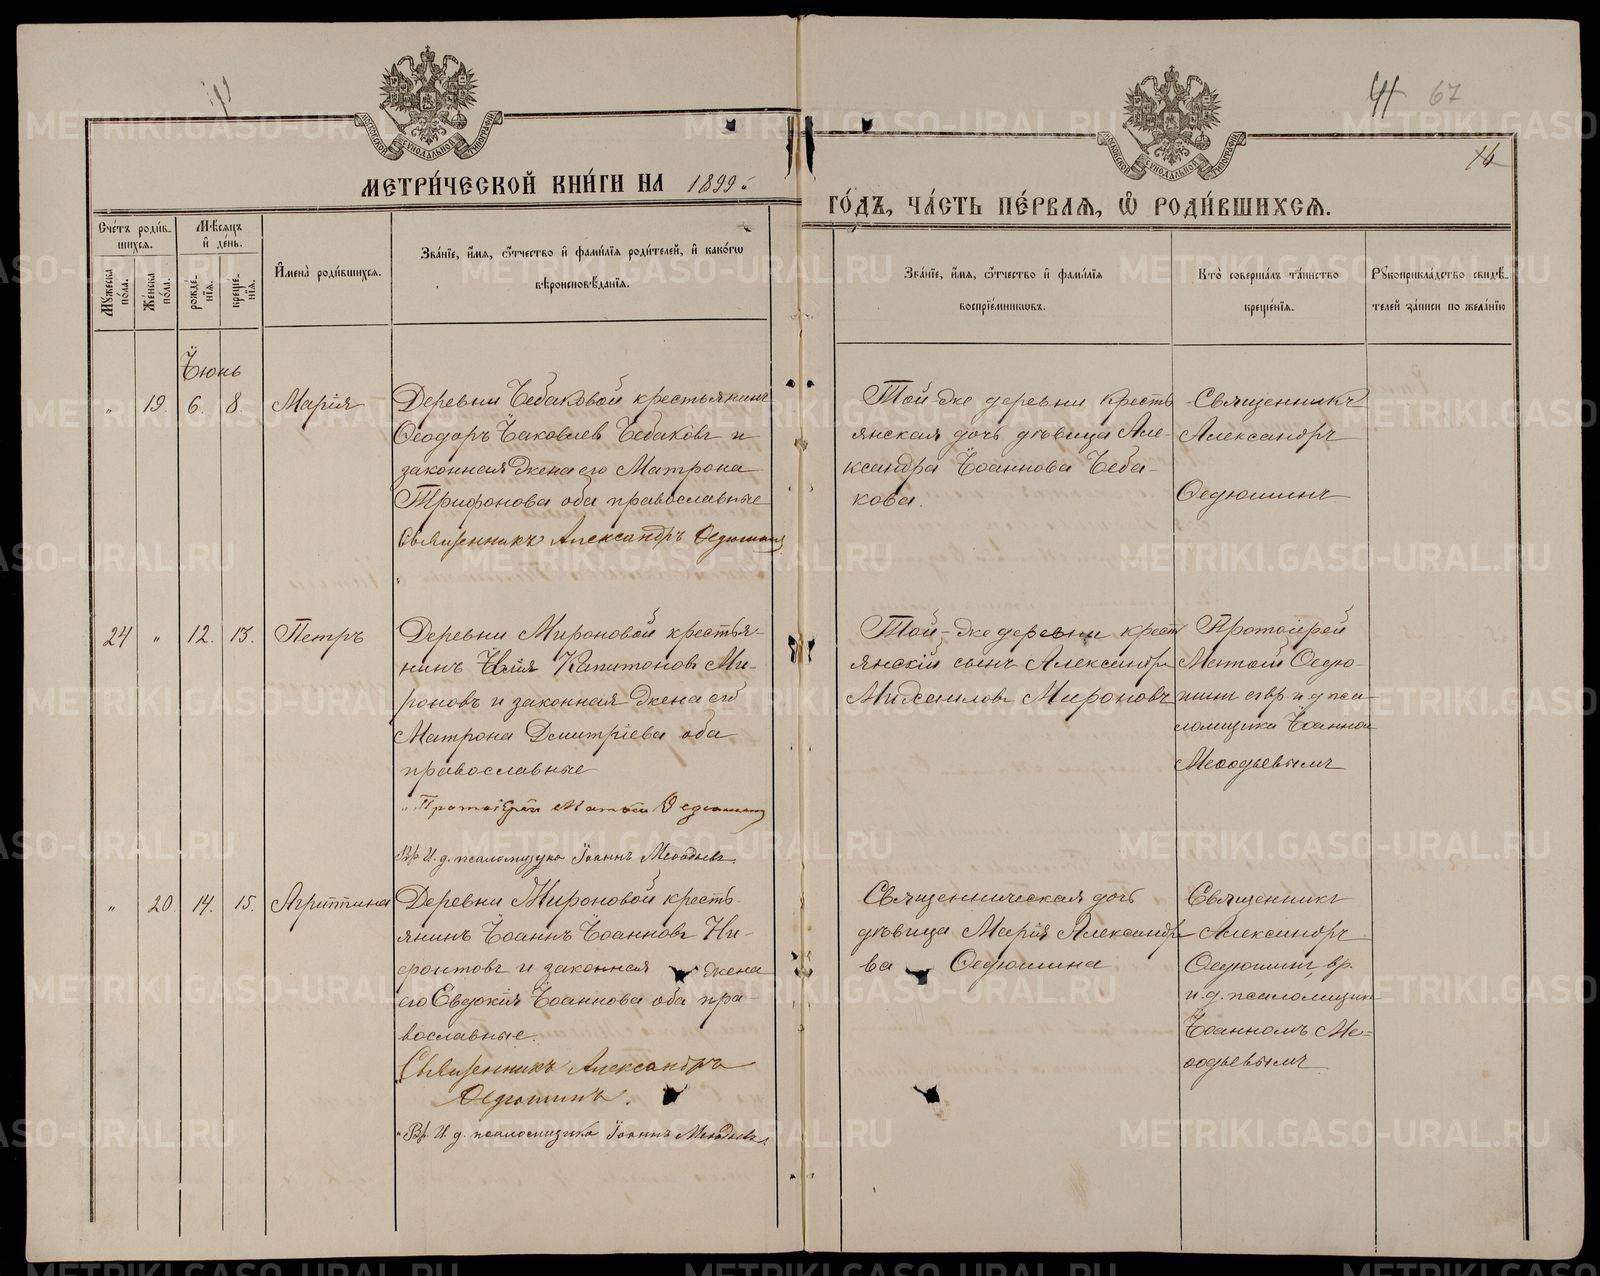 41 67
16
МЕТРИ́ЧЕСКОЙ КНИ́ГИ НА 1899 ГО́ДЪ, ЧА́СТЬ ПЕ́РВАЯ, Ѡ РОДИ́ВШИХСЯ.
Сче́тъ роди́в-
шихся.
Му́жеска по́ла.
Же́нска по́ла.
Мѣ́сяцъ
и҆ де́нь.
рожде́-
нїя.
креще́-
нїя.
И҆мена̀ роди́вшихся.
Зва́нїе, и҆́мя, ѻ҆́тчество и҆ фами́лїя роди́телей, и҆ како́гѡ
вѣроисповѣ́данїя.
Зва́нїе, и҆́мя, ѻ҆́тчество и҆ фами́лїя
воспрїе́мникѡвъ.
Кто̀ соверша́лъ та́инство
креще́нїя.
Рꙋкоприкла́дство свидѣ́-
телей за́писи по жела́нїю
Іюнь
" 19. 6. 8. Марія
Деревни Чебаковой крестьянинъ
Ѳеодоръ Іаковлев Чебаковъ и
законная жена его Матрона
Трифонова оба православные
Священникъ Александръ Ѳедюшинъ
Той-же деревни кресть
янская дочь дѣвица Але-
ксандра Іоаннова Чеба-
кова.
Священникъ
Александръ
Ѳедюшинъ
24 " 12. 13. Петръ
Деревни Мироновой крестья-
нинъ Илія Капитоновъ Ми-
роновъ и законная жена его
Матрона Димитріева оба
православные
Протоіерей Матѳій Ѳедюшинъ
Вр. И. д. псаломщика Іоаннъ Меѳодьевъ.
Той-же деревни крест
янскій сынъ Александръ
Михаиловъ Мироновъ
Протоіерей
Матѳій Ѳедю-
шинъ съ вр. и. д. пса-
ломщика Іоанном
Меѳодьевымъ
" 20 14. 15. Агриппина
Деревни Мироновой кресть-
янинъ Іоаннъ Іоанновъ Ни-
фонтовъ и законная жена
его Евдокія Іоаннова оба пра-
вославные.
Священникъ Александръ
Ѳедюшинъ.
Вр. И. д. псаломщика Іоаннъ Меѳодьевъ.
Священническая дочь
дѣвица Марія Александро
ва Ѳедюшина
Священникъ
Александръ
Ѳедюшинъ, вр.
и. д. псаломщик
Іоанномъ Ме-
ѳодьевымъ
METRIKI.GASO-URAL.RU